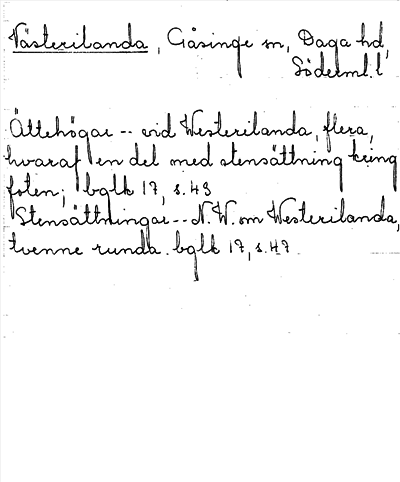 Västerilanda, Gåsinge sn, Daga hd,
Söderml. l
Ättehögar -- vid Westerilanda, flera,
hvaraf en del med stensättning kring
foten; bglk 17, s. 49
Stensättningar -- N.W. om Westerilanda,
tvenne runda. bglk 17, s. 47